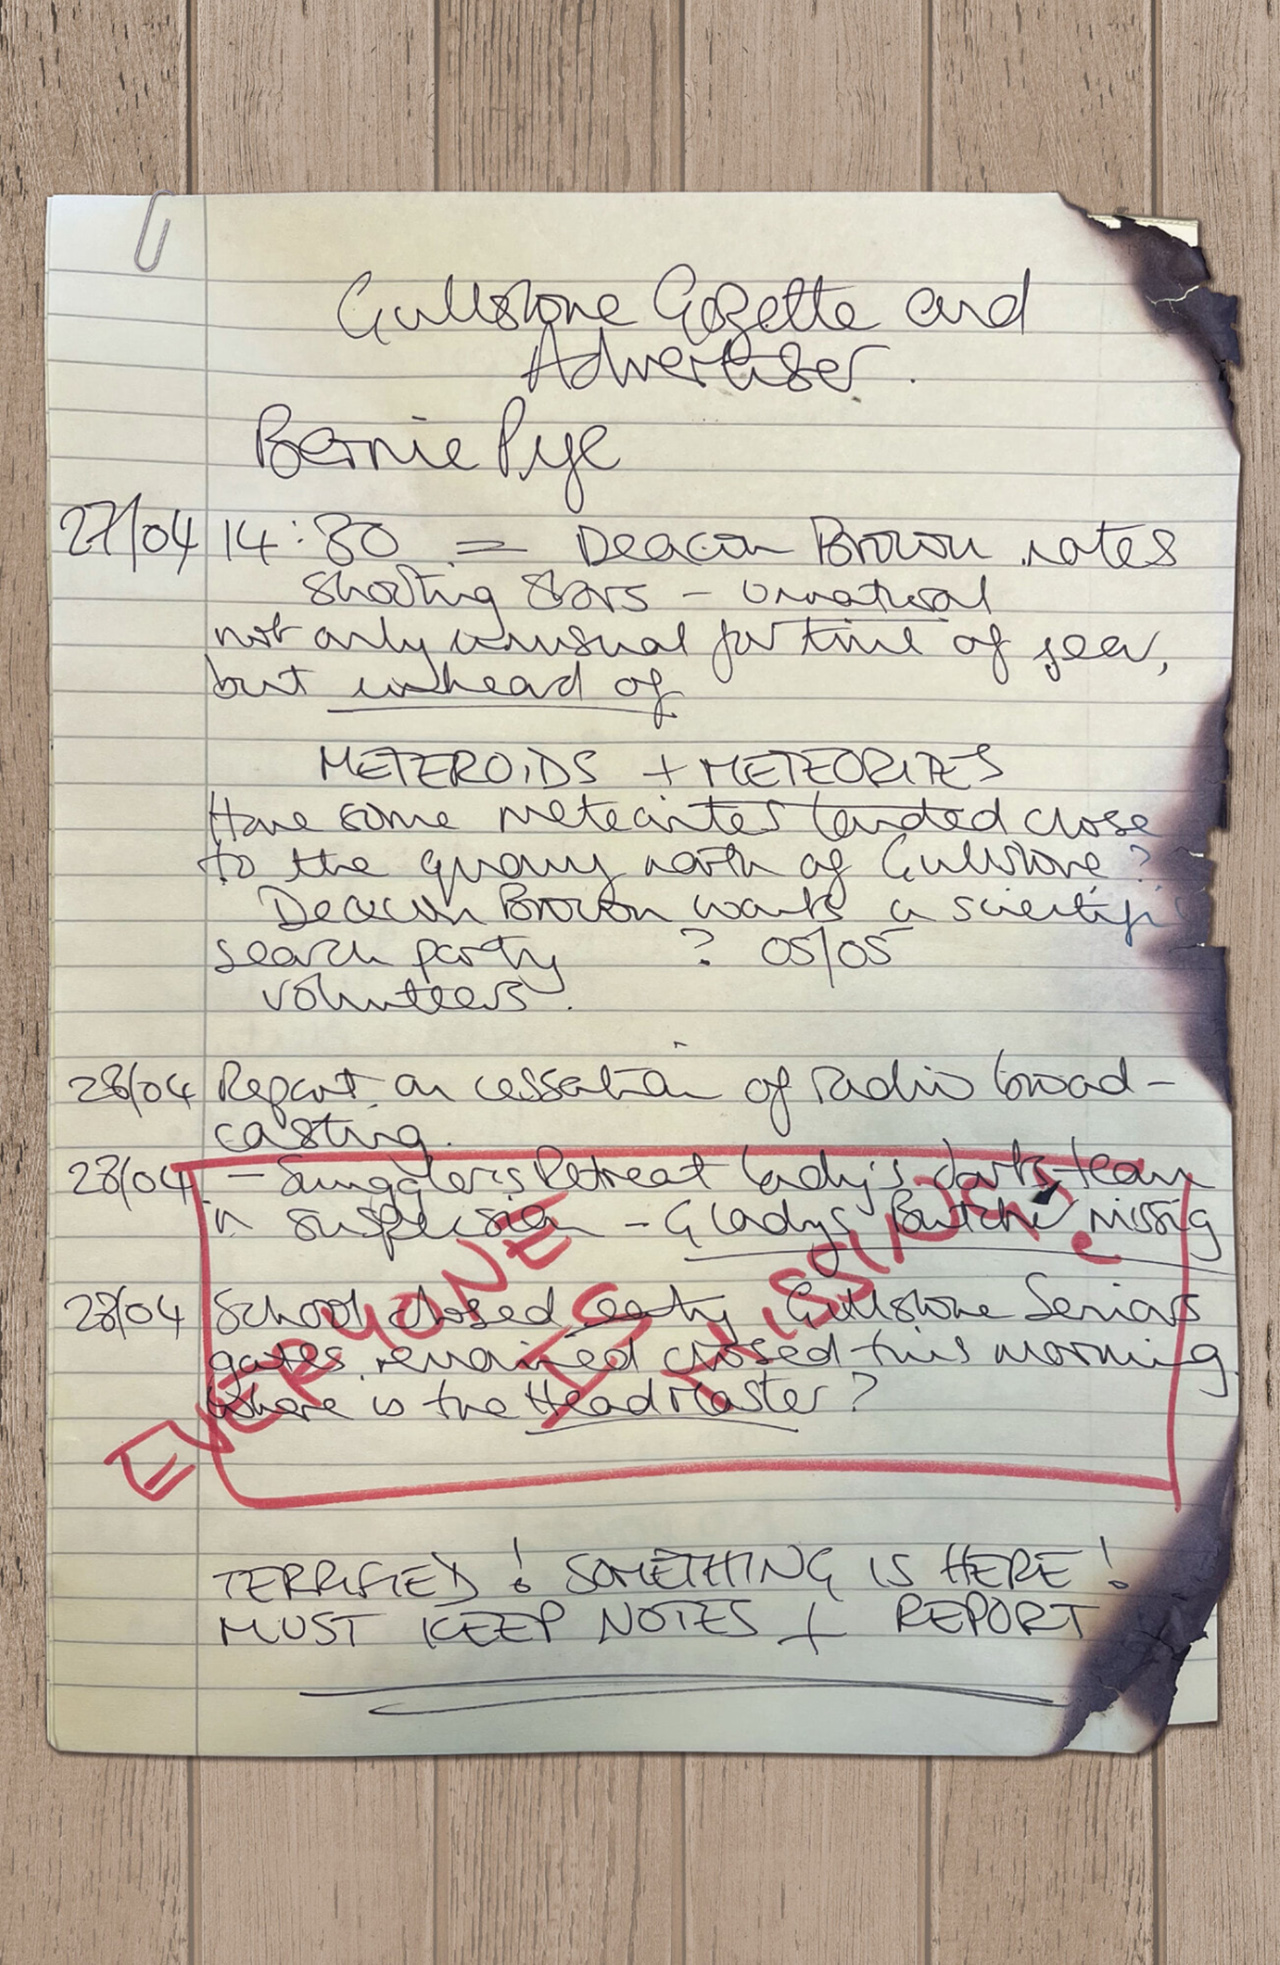 Gullstone Gazette and
Advertiser.
Bernie Pye
27/04 14:30 = Deacon Brown notes
shooting stars - unnatural
not only unusual for time of year,
but unheard of
METEROIDS + METEORITES
Have some meteorites landed close
to the quarry north of Gullstone?
Deacon Brown wants a scientifi
search party ? 05/05
volunteers.
28/04 Report on cessation of radio broad-
casting.
28/04 - Smuggler's Retreat lady's darts team
in suspension - Gladys Butcher missing
28/04 School closed early Gullstone Seniors
gates remained closed this morning.
Where is the HeadMaster?
EVERYONE
IS
MISSING
TERRIFIED! SOMETHING IS HERE!
MUST KEEP NOTES + REPORT